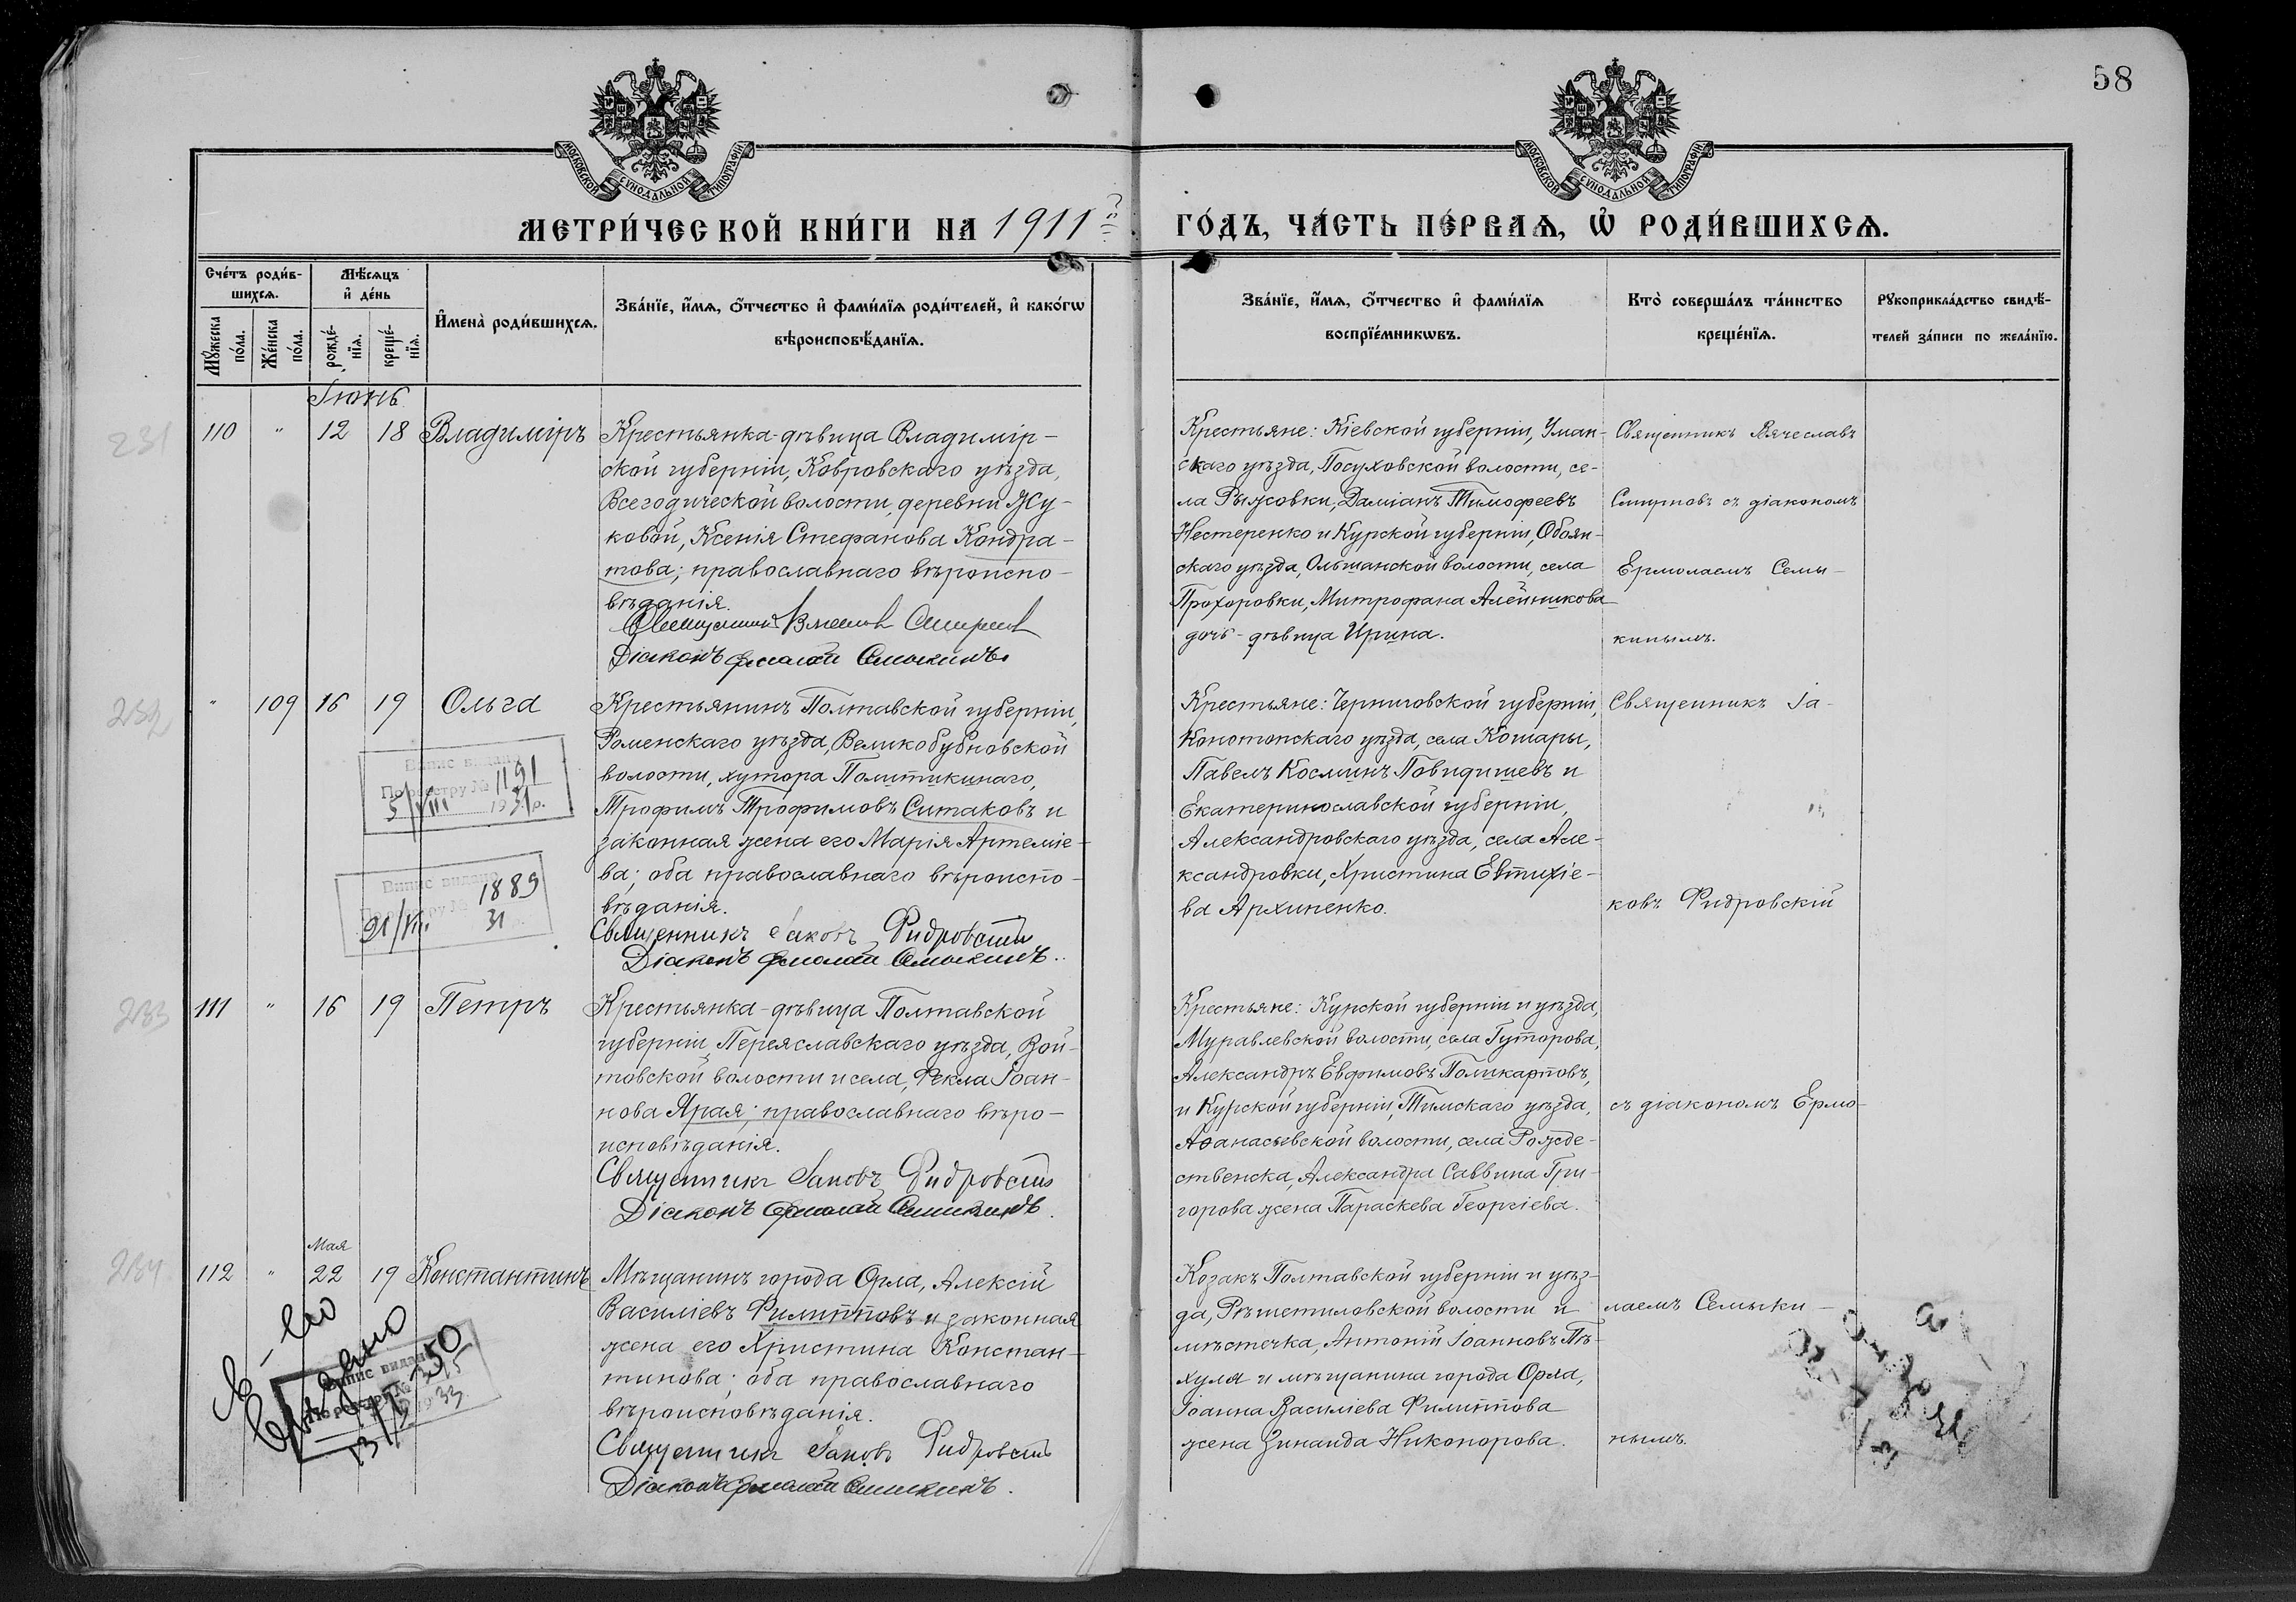 58
МОСКОВСКОЙ СѴНОДАЛЬНОЙ ТИПОГРАФІИ
МОСКОВСКОЙ СѴНОДАЛЬНОЙ ТИПОГРАФІИ
МЕТРИ́ЧЕСКОЙ КНИ́ГИ НА 1911 й
ГО́ДЪ, ЧА́СТЬ ПЕ́РВАѦ, Ѡ҆ РОДИ́ВШИХСѦ.
Сче́тъ роди́в-
шихсѧ.
Мꙋ́жеска
по́ла.
Же́нска
по́ла.
Мѣ́сѧцъ
и҆ де́нь
рожде́-
нїѧ.
креще́-
нїѧ.
И҆мена̀ роди́вшихсѧ.
Зва́нїе, и҆́мѧ, ѻ҆́тчество и҆ фами́лїѧ роди́телей, и҆ како́гѡ
вѣроисповѣ́данїѧ.
Зва́нїе, и҆́мѧ, ѻ҆́тчество и҆ фами́лїѧ
воспрїе́мникѡвъ.
Кто̀ соверша́лъ та́инство
креще́нїѧ.
Рꙋкоприкла́дство свидѣ́-
телей за́писи по жела́нїю.
Іюнь
231
110 " 12 18 Владиміръ
Крестьянка-дѣвица Владимір-
ской губерніи, Ковровскаго уѣзда,
Всегодической волости, деревни Жу-
ковой, Ксенія Стефанова Кондра-
това; православнаго вѣроиспо-
вѣданія.
Священникъ Вячеслав Смирнов
Діаконъ Ермолай Семыкинъ
Крестьяне: Кіевской губерніи, Уман-
скаго уѣзда, Посуховской волости, се-
ла Рыжовки, Даміанъ Тимофеевъ
Нестеренко и Курской губерніи, Обоян-
скаго уѣзда, Ольшанской волости, села
Прохоровки, Митрофана Алейникова
дочь-дѣвица Ирина.
Священникъ Вячеславъ
Смирновъ съ діакономъ
Ермолаемъ Семы-
кинымъ.
232
" 109 16 19 Ольга
Випис видано
По реєстру № 1191
5/VIII 1931 р.
Випис видано
1889
21/VII. 31
Крестьянинъ Полтавской губерніи,
Роменскаго уѣзда, Великобубновской
волости, хутора Политикинаго,
Трофимъ Трофимовъ Ситаковъ и
законная жена его Марія Артеміе-
ва; оба православнаго вѣроиспо-
вѣданія.
Священникъ Іаковъ Фидровскій
Діаконъ Ермолай Семыкинъ.
Крестьяне: Черниговской губерніи,
Конотопскаго уѣзда, села Кошары,
Павелъ Косминъ Повидишевъ и
Екатеринославской губерніи,
Александровскаго уѣзда, села Але-
ксандровки, Христина Евтихіе-
ва Архипенко.
Священникъ Іа-
ковъ Фидровскій
233
111 " 16 19 Петръ
Крестьянка-дѣвица Полтавской
губерніи, Переяславскаго уѣзда, Вой-
товской волости и села, Ѳекла Іоан-
нова Ярая; православнаго вѣро-
исповѣданія.
Священникъ Іаковъ Фидровскій
Діаконъ Ермолай Семыкинъ.
Крестьяне: Курской губерніи и уѣзда,
Муравлевской волости, села Гуторова,
Александръ Евфимовъ Поликарповъ,
и Курской губерніи, Тимскаго уѣзда,
Аѳанасьевской волости, села Рожде-
ственска, Александра Саввина Гри-
горова жена Параскева Георгіева.
съ діакономъ Ермо-
234
Мая
112 " 22 19 Константинъ
Випис видано
По реєстру № 350
1933
Мѣщанинъ города Орла, Алексій
Василіевъ Филипповъ и законная
жена его Христина Констан-
тинова; оба православнаго
вѣроисповѣданія.
Священникъ Іаковъ Фидровскій
Діаконъ Ермолай Семыкинъ.
Козакъ Полтавской губерніи и уѣз-
да, Рѣшетиловской волости и
мѣстечка, Антоній Іоанновъ Пѣ-
хуля и мѣщанина города Орла,
Іоанна Василіева Филиппова
жена Зинаида Никонорова.
лаемъ Семыки-
нымъ.